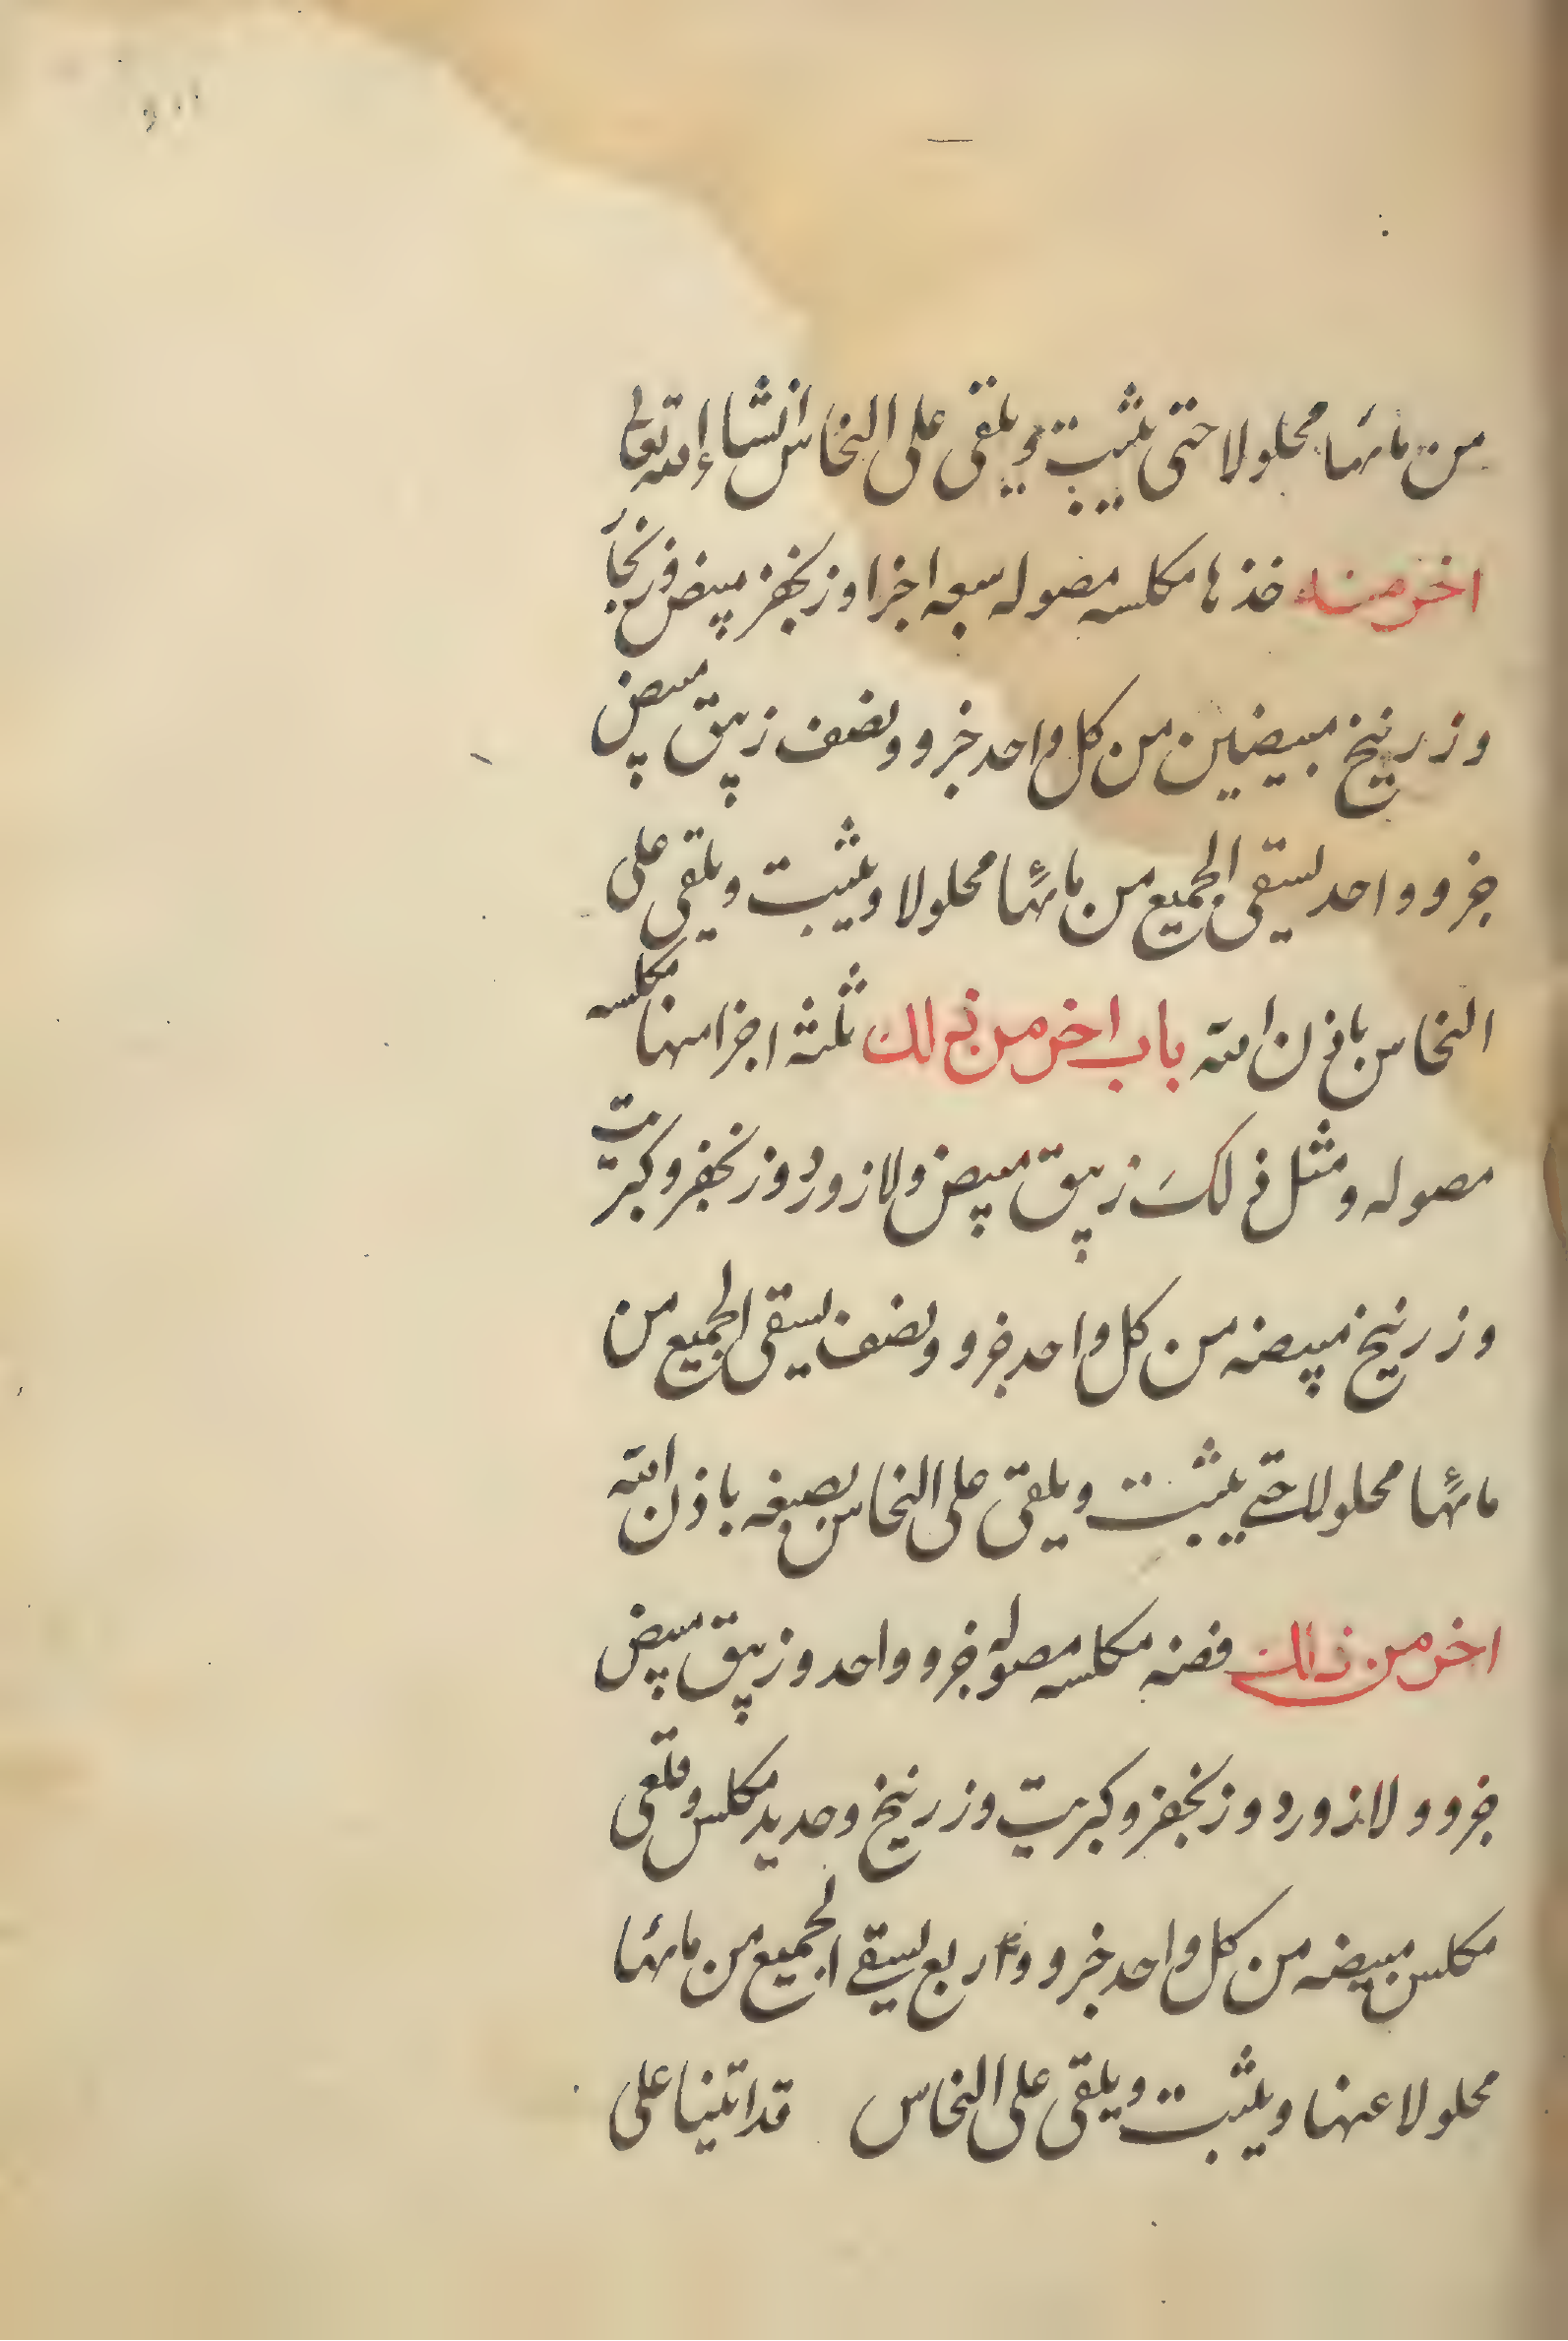 من مائها محلولا حتى يثبت ويلقى على النحاس انشاء الله تعالى
اخر منه خذها مكلسه مصوله سبعه اجزا وزنجفر مبيض وزنجار
وزرنيخ مبيضين من كل واحد جزو ونصف زيبق مبيض
جزو واحد يسقى الجميع من مائها محلولا ويثبت ويلقى على
النحاس باذن الله باب اخر من ذلك ثلثه اجزا منها مكلسه
مصوله ومثل ذلك زيبق مبيض ولازورد وزنجفر وكبريت
وزرنيخ مبيضه من كل واحد جزو ونصف يسقى الجميع من
مائها محلولا حتى يثبت ويلقى على النحاس يصبغه باذن الله
اخر من ذلك فضه مكلسه مصوله جزو واحد وزيبق مبيض
جزو ولازورد وزنجفر وكبريت وزرنيخ وحديد مكلس وقلعى
مكلس مبيضه من كل واحد جزو وربع يسقى الجميع من مائها
محلولا عنها ويثبت ويلقى على النحاس قد اتينا على